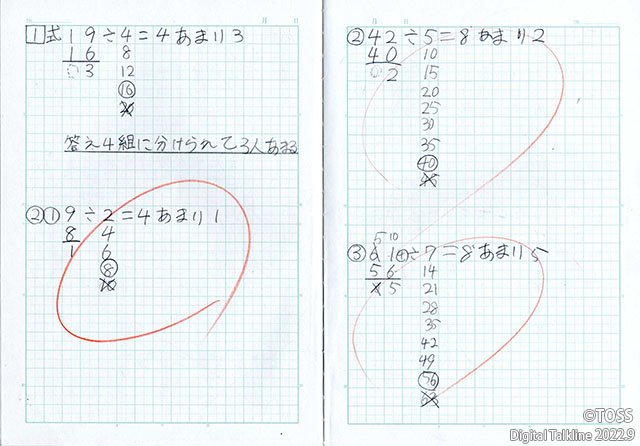 1 式 19÷4=4あまり3
16 8
03 12
16
20
答え4組に分けられて3人あまる
② ① 9÷2=4あまり1
8 4
1 6
8
10
② 42÷5=8あまり2
40 10
02 15
20
25
30
35
40
45
5 10
③ 61÷7=8あまり5
56 14
5 21
28
35
42
49
56
63
©TOSS
Digital Talkline 2022.9